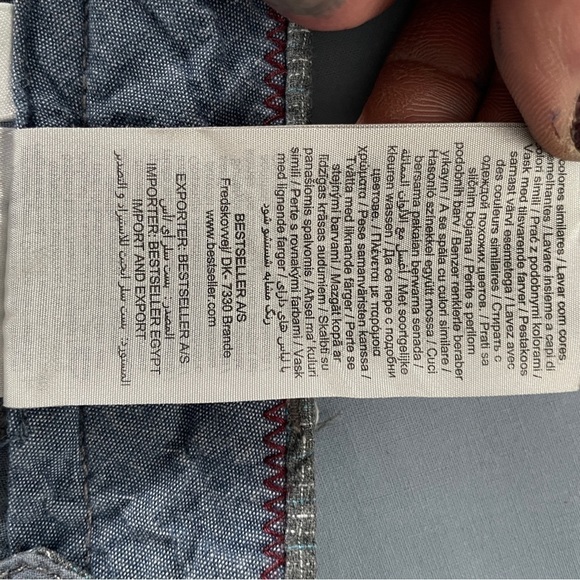 colores similares / Lavar com cores
semelhantes / Lavare insieme a capi di
colori simili / Prać z podobnymi kolorami /
Vask med tilsvarende farver / Pestakoos
samast värvi esemetega / Lavez avec
des couleurs similaires / Стирать с
одеждой похожих цветов. / Prati sa
sličnim bojama / Perite s perilom
podobnih barv / Benzer renklerle beraber
yıkayın / A se spăla cu culori similare /
Hasonló színekkel együtt mossa / Cuci
bersama pakaian berwarna senada /
اغسل مع الألوان المماثلة / Met soortgelijke
kleuren wassen / Да се пере с подобни
цветове. / Πλένεται με παρόμοια
χρώματα / Pese samanväristen kanssa /
Tvätta med liknande färger / Perte se
stejnými barvami / Mazgāt kopā ar
līdzīgas krāsas audumiem / Skalbti su
panašiomis spalvomis / Ansel ma' kuluri
simili / Perte s rovnakými farbami / Vask
med lignende farger / با لباس های دارای
رنگ مشابه شستشو شود
BESTSELLER A/S
Fredskovvej DK- 7330 Brande
www.bestseller.com
EXPORTER: BESTSELLER A/S
المصدر: بست سلر اى/اس
IMPORTER: BESTSELLER EGYPT
IMPORT AND EXPORT
المستورد: بست سلر ايجبت للاستيراد و التصدير